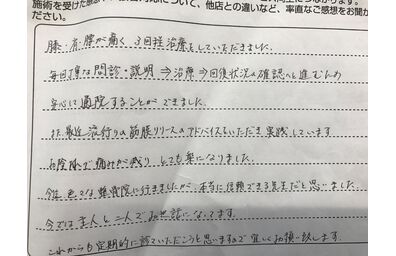 施術を受けた感想や、教員対応について、他店との違いなど、率直なご感想をお聞か
ださい。
膝・肩・腰が痛く、3回程治療をしていただきました。
毎回丁寧な問診・説明 ⇒治療⇒回復状況の確認へと進むため
安心に通院することができました。
また最近流行りの筋膜リリースのアドバイスもいただき実践しています
お陰様で痛みが減り とても楽になりました。
今迄 色々な整骨院に行きましたが、本当に信頼できる先生だと思いました
今では主人と二人でお世話になってます。
これからも定期的に診ていただこうと思いますので宜しくお願い致します。